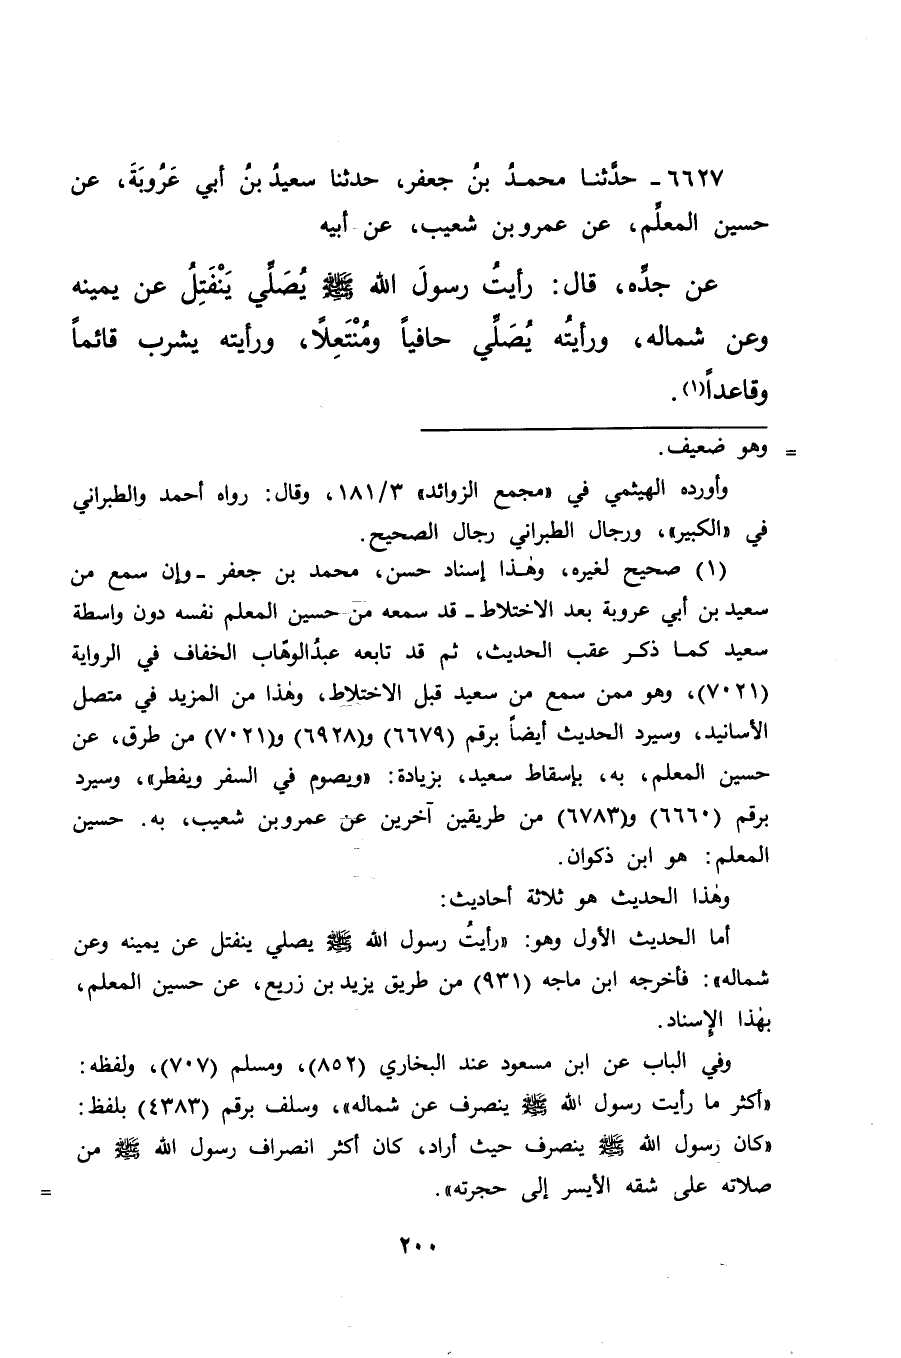 ٦٦٢٧ ـ حدَّثنـا محمـدُ بنُ جعفر، حدثنا سعيدُ بنُ أبي عَرُوبَةَ، عن
حسين المعلَّم، عن عمرو بن شعيب، عن أبيه
عن جدِّه، قال: رأيتُ رسولَ الله ﷺ يُصَلِّي يَنْفَتِلُ عن يمينه
وعن شماله، ورأيتُه يُصَلِّي حافياً ومُنْتَعِلًا، ورأيته يشرب قائماً
وقاعداً(١).
= وهو ضعيف.
وأورده الهيثمي في «مجمع الزوائد» ١٨١/٣، وقال: رواه أحمد والطبراني
في «الكبير»، ورجال الطبراني رجال الصحيح.
(١) صحيح لغيره، وهٰـذا إسناد حسن، محمد بن جعفر ـ وإن سمع من
سعيد بن أبي عروبة بعد الاختلاط ـ قد سمعه من حسين المعلم نفسه دون واسطة
سعيد كمـا ذكـر عقب الحديث، ثم قد تابعه عبدُالوهَّاب الخفاف في الرواية
(٧٠٢١)، وهو ممن سمع من سعيد قبل الاختلاط، وهٰذا من المزيد في متصل
الأسانيد، وسيرد الحديث أيضاً برقم (٦٦٧٩) و(٦٩٢٨) و(٧٠٢١) من طرق، عن
حسين المعلم، به، بإسقاط سعيد، بزيادة: «ويصوم في السفر ويفطر»، وسيرد
برقم (٦٦٦٠) و(٦٧٨٣) من طريقين آخرين عن عمرو بن شعيب، به. حسين
المعلم: هو ابن ذكوان.
وهٰذا الحديث هو ثلاثة أحاديث:
أما الحديث الأول وهو: «رأيتُ رسول الله ﷺ يصلي ينفتل عن يمينه وعن
شماله»: فأخرجه ابن ماجه (٩٣١) من طريق يزيد بن زريع، عن حسين المعلم،
بهٰذا الإِسناد.
وفي الباب عن ابن مسعود عند البخاري (٨٥٢)، ومسلم (٧٠٧)، ولفظه:
«أكثر ما رأيت رسول الله ﷺ ينصرف عن شماله»، وسلف برقم (٤٣٨٣) بلفظ:
«كان رسول الله ﷺ ينصرف حيث أراد، كان أكثر انصراف رسول الله ﷺ من
صلاته على شقه الأيسر إلى حجرته». =
٢٠٠